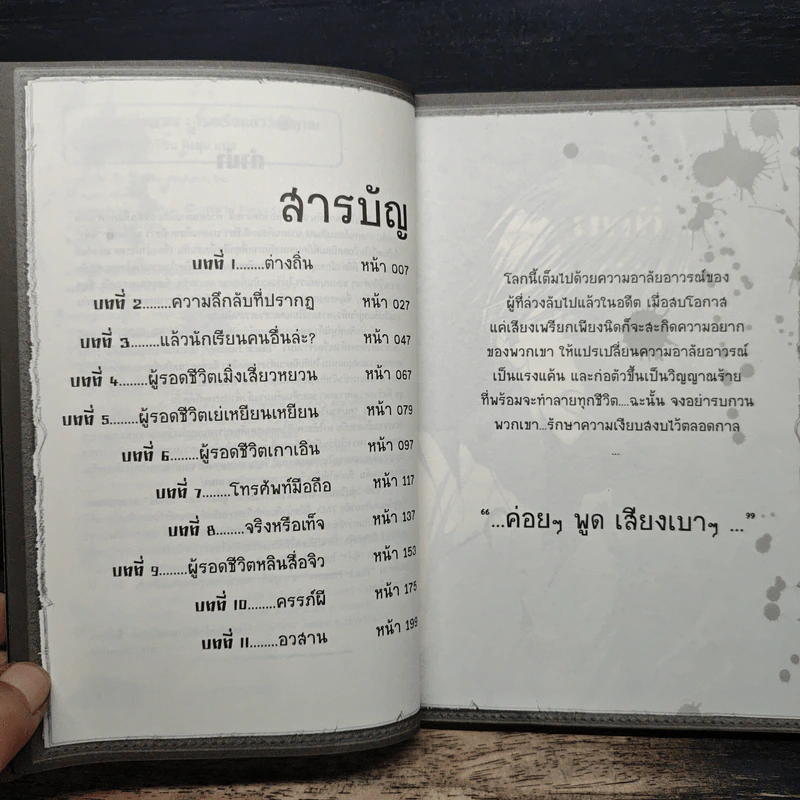 สารบัญ
บทที่ 1........ต่างถิ่น หน้า 007
บทที่ 2........ความลึกลับที่ปรากฏ หน้า 027
บทที่ 3........แล้วนักเรียนคนอื่นล่ะ? หน้า 047
บทที่ 4........ผู้รอดชีวิตเมิ่งเสี่ยวหยวน หน้า 067
บทที่ 5........ผู้รอดชีวิตเย่เหยียนเหยียน หน้า 079
บทที่ 6........ผู้รอดชีวิตเกาเอิน หน้า 097
บทที่ 7........โทรศัพท์มือถือ หน้า 117
บทที่ 8........จริงหรือเท็จ หน้า 137
บทที่ 9........ผู้รอดชีวิตหลินสื่อจิว หน้า 153
บทที่ 10........ครรภ์ผี หน้า 175
บทที่ 11........อวสาน หน้า 199
โลกนี้เต็มไปด้วยความอาลัยอาวรณ์ของ
ผู้ที่ล่วงลับไปแล้วในอดีต เมื่อสบโอกาส
แค่เสียงเพรียกเพียงนิดก็จะสะกิดความอยาก
ของพวกเขา ให้แปรเปลี่ยนความอาลัยอาวรณ์
เป็นแรงแค้น และก่อตัวขึ้นเป็นวิญญาณร้าย
ที่พร้อมจะทำลายทุกชีวิต....ฉะนั้น จงอย่ารบกวน
พวกเขา...รักษาความเงียบสงบไว้ตลอดกาล
...
“...ค่อยๆ พูด เสียงเบาๆ ...”